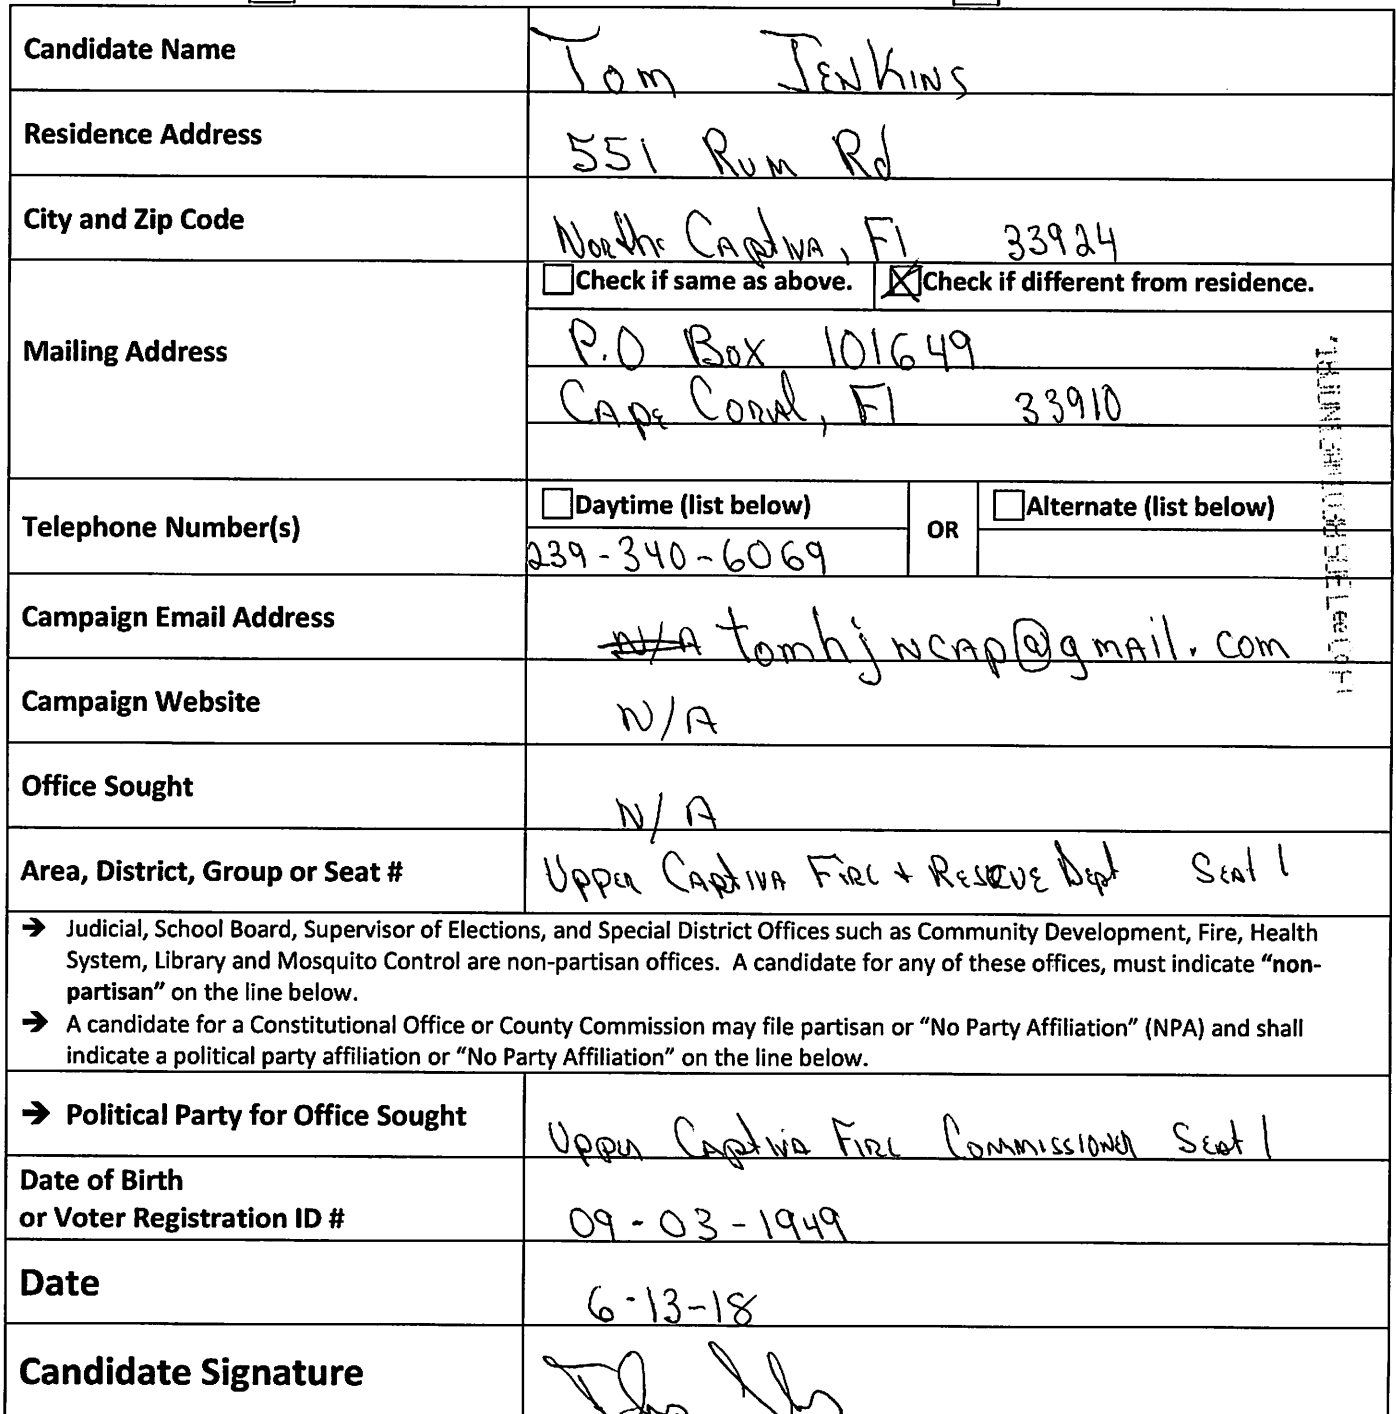 Candidate Name
Tom JENKINS
Residence Address
551 Rum Rd
City and Zip Code
North Captiva, Fl 33924
Check if same as above. Check if different from residence.
Mailing Address
P.O Box 101649
Cape Coral, Fl 33910
Daytime (list below) Alternate (list below)
Telephone Number(s)
OR
239-340-6069
Campaign Email Address
N/A tomhjncap@gmail.com
Campaign Website
N/A
Office Sought
N/A
Area, District, Group or Seat #
Upper Captiva Fire + Rescue Dept Seat 1
→ Judicial, School Board, Supervisor of Elections, and Special District Offices such as Community Development, Fire, Health
System, Library and Mosquito Control are non-partisan offices. A candidate for any of these offices, must indicate “non-
partisan” on the line below.
→ A candidate for a Constitutional Office or County Commission may file partisan or “No Party Affiliation” (NPA) and shall
indicate a political party affiliation or “No Party Affiliation” on the line below.
→ Political Party for Office Sought
Upper Captiva Fire Commissioner Seat 1
Date of Birth
or Voter Registration ID #
09-03-1949
Date
6-13-18
Candidate Signature